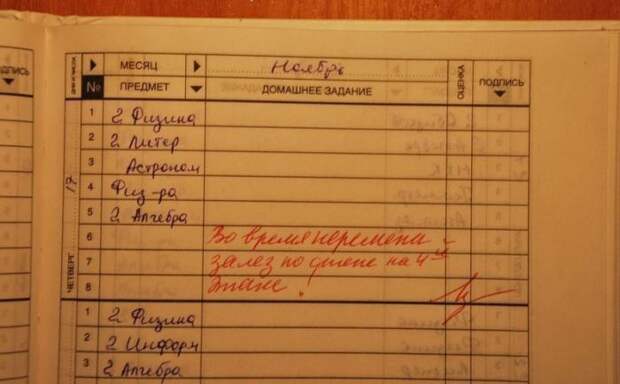 МЕСЯЦ Ноябрь
ПОДПИСЬ № ПРЕДМЕТ ДОМАШНЕЕ ЗАДАНИЕ ОЦЕНКА ПОДПИСЬ
1 2 Физика
2 2 Литер
3 Астроном
17 4 Физ-ра
5 2 Алгебра
6 Во время перемены
ЧЕТВЕРГ 7 залез по стене на 4ый
8 этаж!
1 2 Физика
2 2 Информ
3 2 Алгебра